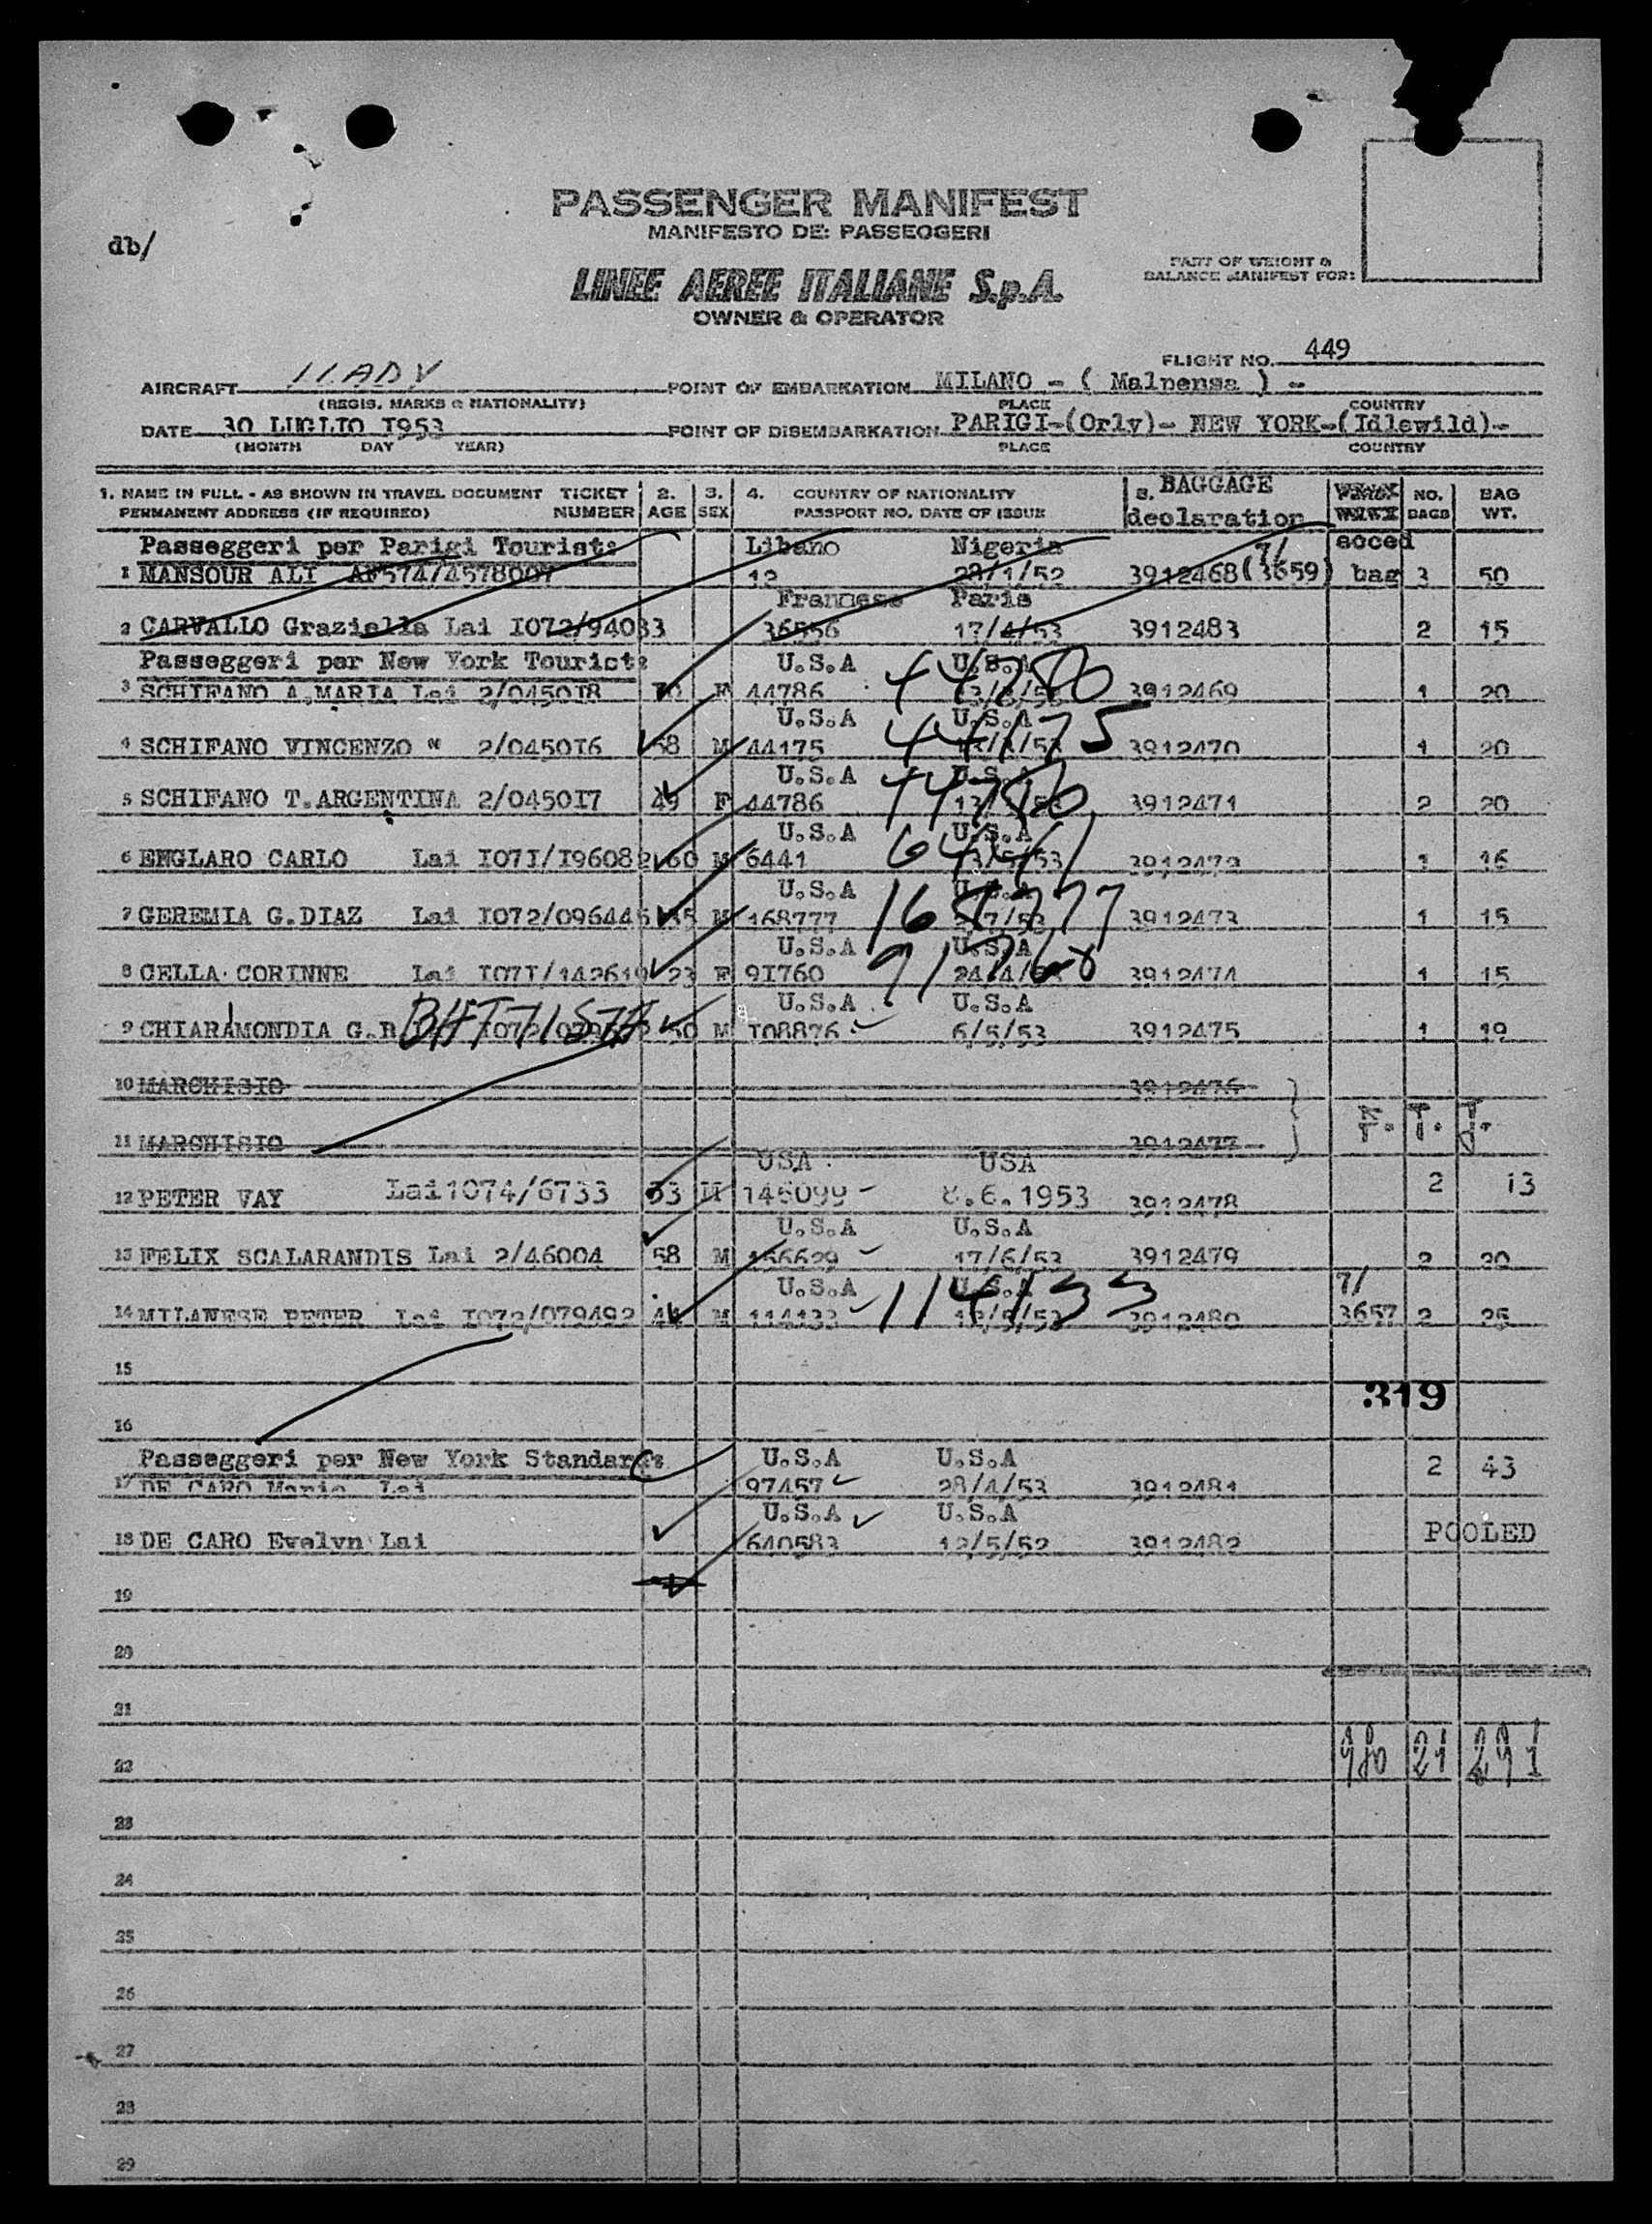 PASSENGER MANIFEST
MANIFESTO DEI PASSEGGERI
db/
LINEE AEREE ITALIANE S.p.A.
OWNER & OPERATOR
PART OF WEIGHT &
BALANCE MANIFEST FOR:
FLIGHT NO. 449
AIRCRAFT POINT OF EMBARKATION MILANO - ( Malpensa ) -
(REGIS. MARKS & NATIONALITY) PLACE COUNTRY
DATE 30 LUGLIO I953 POINT OF DISEMBARKATION PARIGI-(Orly)- NEW YORK-(Idlewild)-
(MONTH DAY YEAR) PLACE COUNTRY
1. NAME IN FULL - AS SHOWN IN TRAVEL DOCUMENT TICKET 2. 3. 4. COUNTRY OF NATIONALITY BAGGAGE NO. BAG
PERMANENT ADDRESS (IF REQUIRED) NUMBER AGE SEX PASSPORT NO. DATE OF ISSUE declaration BAGS WT.
Passeggeri per Parigi Tourist: Libano Nigeria 7/ acced
1 MANSOUR ALI AF574/4578007 12 28/1/52 3912468(3659) bag 3 50
Francese Paris
2 CARVALLO Graziella Lai I072/94083 36556 17/4/53 3912483 2 15
Passeggeri per New York Tourist: U.S.A U.S.A
3 SCHIFANO A.MARIA Lai 2/045018 70 F 44786 44786 3912469 1 20
U.S.A U.S.A
4 SCHIFANO VINCENZO " 2/045016 68 M 44175 44175 3912470 1 20
U.S.A U.S.A
5 SCHIFANO T.ARGENTINA 2/045017 49 F 44786 3912471 2 20
U.S.A U.S.A
6 ENGLARO CARLO Lai I07I/I96082 60 M 6441 6441 3912472 1 16
U.S.A U.S.A
7 GEREMIA G.DIAZ Lai I072/096446 35 M 168777 168777 3912473 1 15
U.S.A U.S.A
8 CELLA CORINNE Lai I07I/142619 23 F 9I760 91760 3912474 1 15
U.S.A U.S.A
9 CHIARAMONDIA G.B BATTISTA 50 M I08876 6/5/53 3912475 1 19
10 MARCHISIO 3912476
11 MARCHISIO 3912477
USA USA
12 PETER VAY Lai1074/6733 53 M 146099 8.6.1953 3912478 2 13
U.S.A U.S.A
13 FELIX SCALARANDIS Lai 2/46004 58 M 156629 17/6/53 3912479 2 20
U.S.A U.S.A 7/
14 MILANESE PETER Lai I072/079492 44 M 114133 114133 3912480 3657 2 25
15
319
16
Passeggeri per New York Standard: U.S.A U.S.A 2 43
17 DE CARO Mario Lai 97457 28/4/53 3912481
U.S.A U.S.A
18 DE CARO Evelyn Lai 640583 12/5/52 3912482 POOLED
19
20
21
22 980 21 291
23
24
25
26
27
28
29